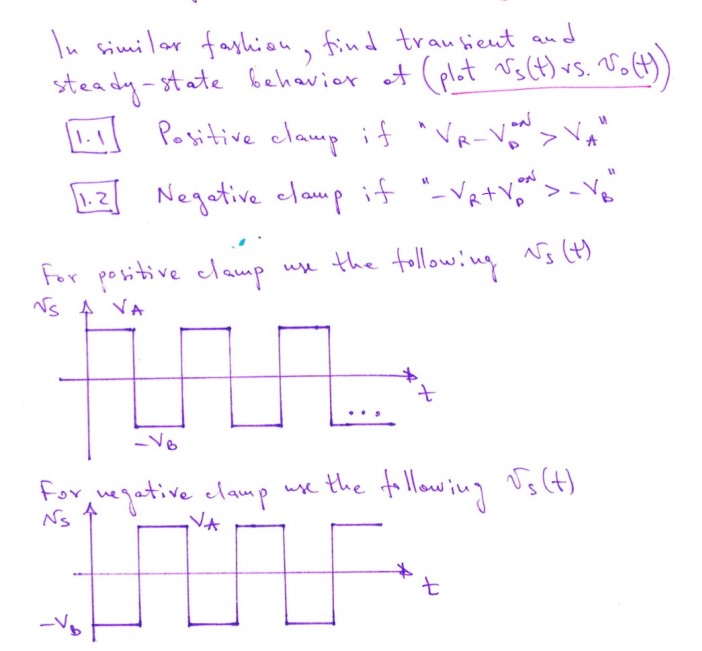 In similar fashion, find transient and
steady-state behavior of (plot vs(t) vs. vo(t))
1.1 Positive clamp if "VR-VD^ON > VA"
1.2 Negative clamp if "-VR+VD^ON > -VB"
For positive clamp use the following vs(t)
vs VA
t
...
-VB
For negative clamp use the following vs(t)
vs VA
t
-VB